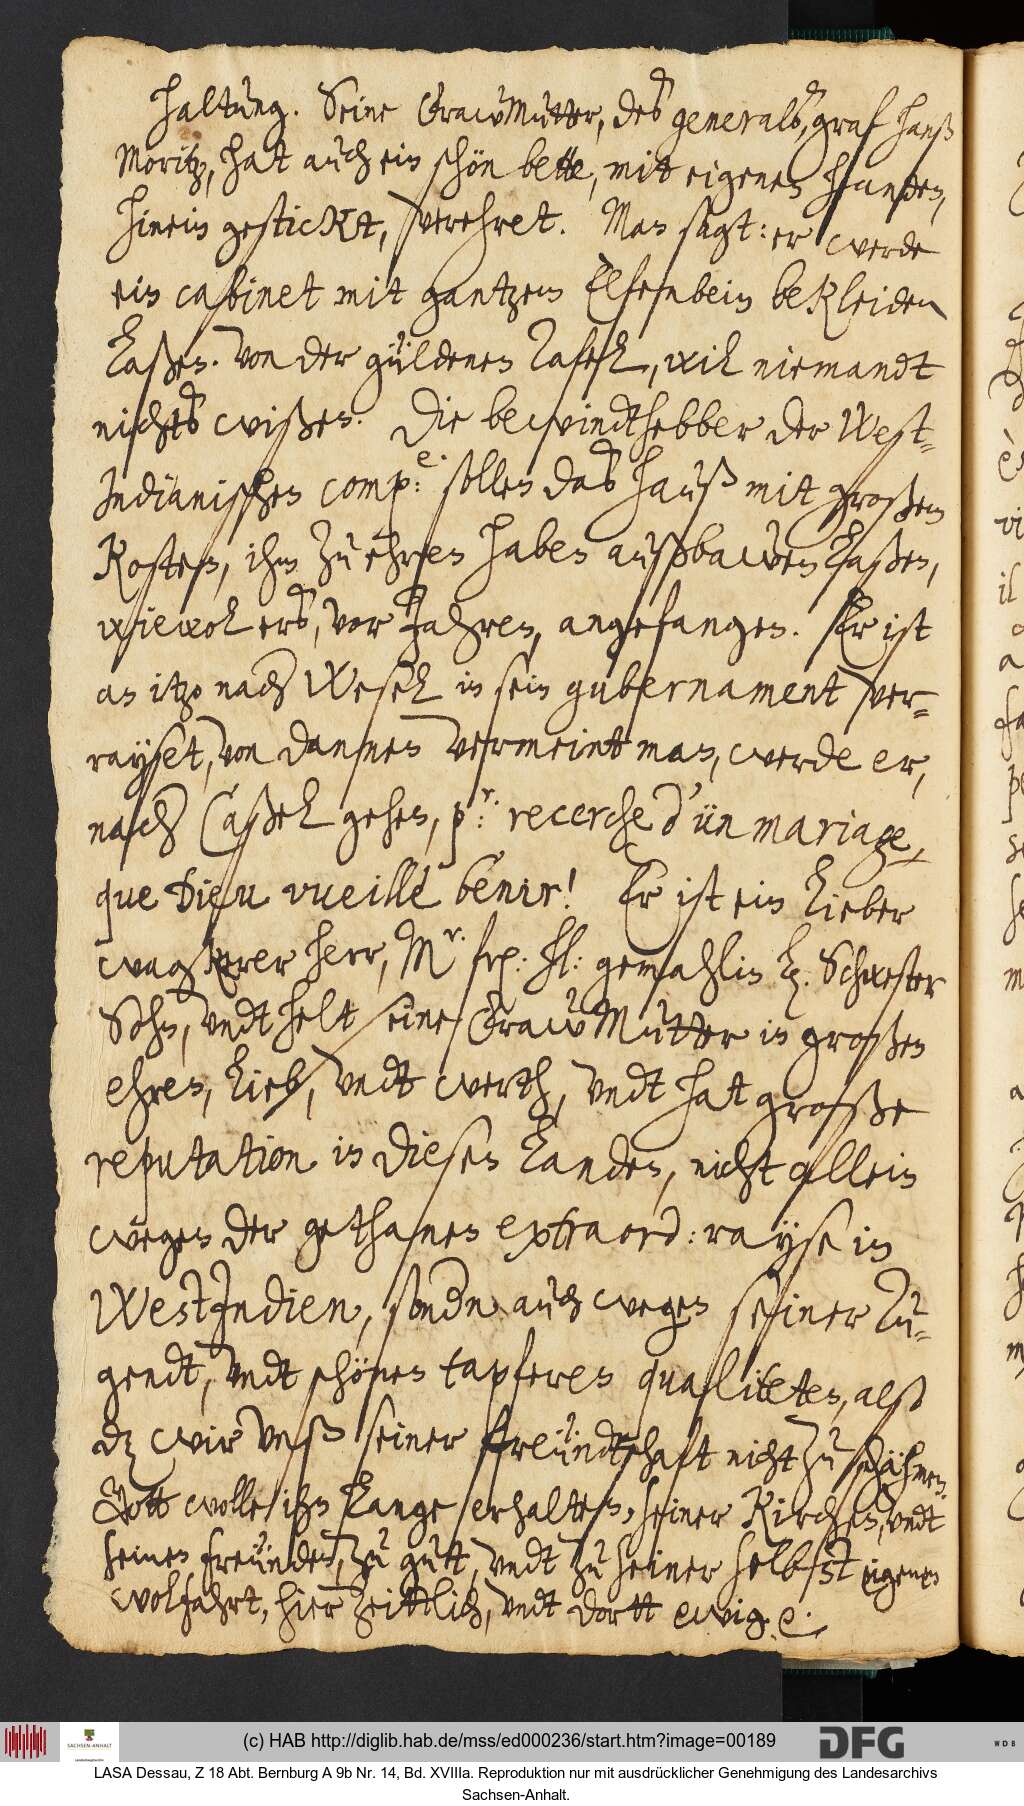 haltung. Seine FrawMutter, des generals, graf Hanß
Moritz, hat auch ein schön bette, mit eigenen handen,
hinein gestickt, verehret. Man sagt: er werde
ein cabinet mit gantzem Elfenbein bekleiden
laßen. Von der güldenen Tafel, wil niemandt
nichts wißen. Die bewindthebber der West-
Indianischen comp:e sollen das hauß mit großem
Kosten, ihm zu ehren haben außbawen laßen,
wiewol ers, vor Jahren, angefangen. Er ist
an itzo nach Wesel in sein gubernament ver-
rayset, von dannen vermeint man, werde er,
nach Caßel gehen, p:r recerche d'ün mariage,
que Dieu vueille benir! Er ist ein lieber
wagkerer herr, Mr. fr: hl: gemahlin Schwester
Sohn, vndt helt seine FrawMutter in großen
ehren, lieb, vndt werth, vndt hat große
reputation in diesen Landen, nicht allein
wegen der gethanen extraord: rayse in
WestIndien, sondn auch wegen seiner Tu-
gendt, vndt schönen tapferen qualiteten, alß
dz wir vnß seiner freündtschaft nicht zu schähmen.
Gott wolle ihn lange erhalten, seiner Kirchen, vndt
seinen freünden, zu gutt, vndt zu seiner selbst eigenen
wolfahrt, hier zeittlich, vndt dortt ewig. e.
(c) HAB http://diglib.hab.de/mss/ed000236/start.htm?image=00189
SACHSEN-ANHALT
DFG
WDB
LASA Dessau, Z 18 Abt. Bernburg A 9b Nr. 14, Bd. XVIIIa. Reproduktion nur mit ausdrücklicher Genehmigung des Landesarchivs
Sachsen-Anhalt.